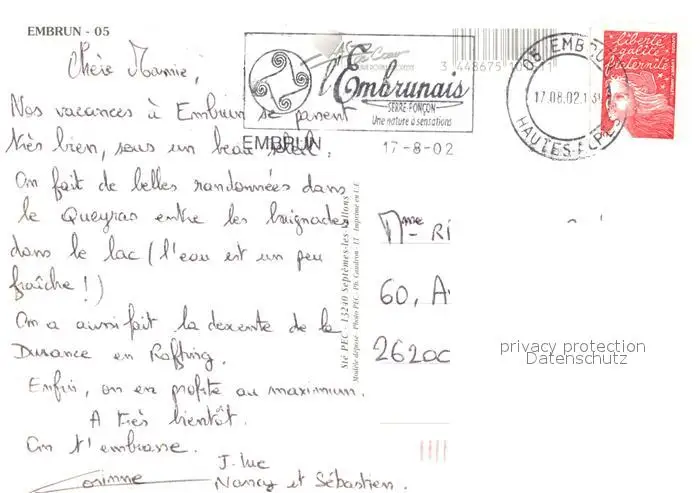 EMBRUN - 05
Chère Mamie,
Nos vacances à Embrun se passent
très bien, sous un beau soleil.
On fait de belles randonnées dans
le Queyras entre les baignades
dans le lac (l'eau est un peu
fraîche !)
On a aussi fait la descente de la
Durance en Rafting.
Enfin, on en profite au maximum.
A très bientôt.
On t'embrasse.
Corinne
J. Luc
Nancy et Sébastien.
l'Embrunais
SERRE-PONÇON
Une nature à sensations
EMBRUN
17-8-02
05 EMBRU
17.08.02
HAUTES-ALPES
liberté
égalité
fraternité
Sté PEC - 13240 Septèmes-les-Vallons
Modèle déposé - Photo PEC - Ph. Gaudron - IT - Imprimé en U.E
Mme RI
60, A
26200
privacy protection
Datenschutz